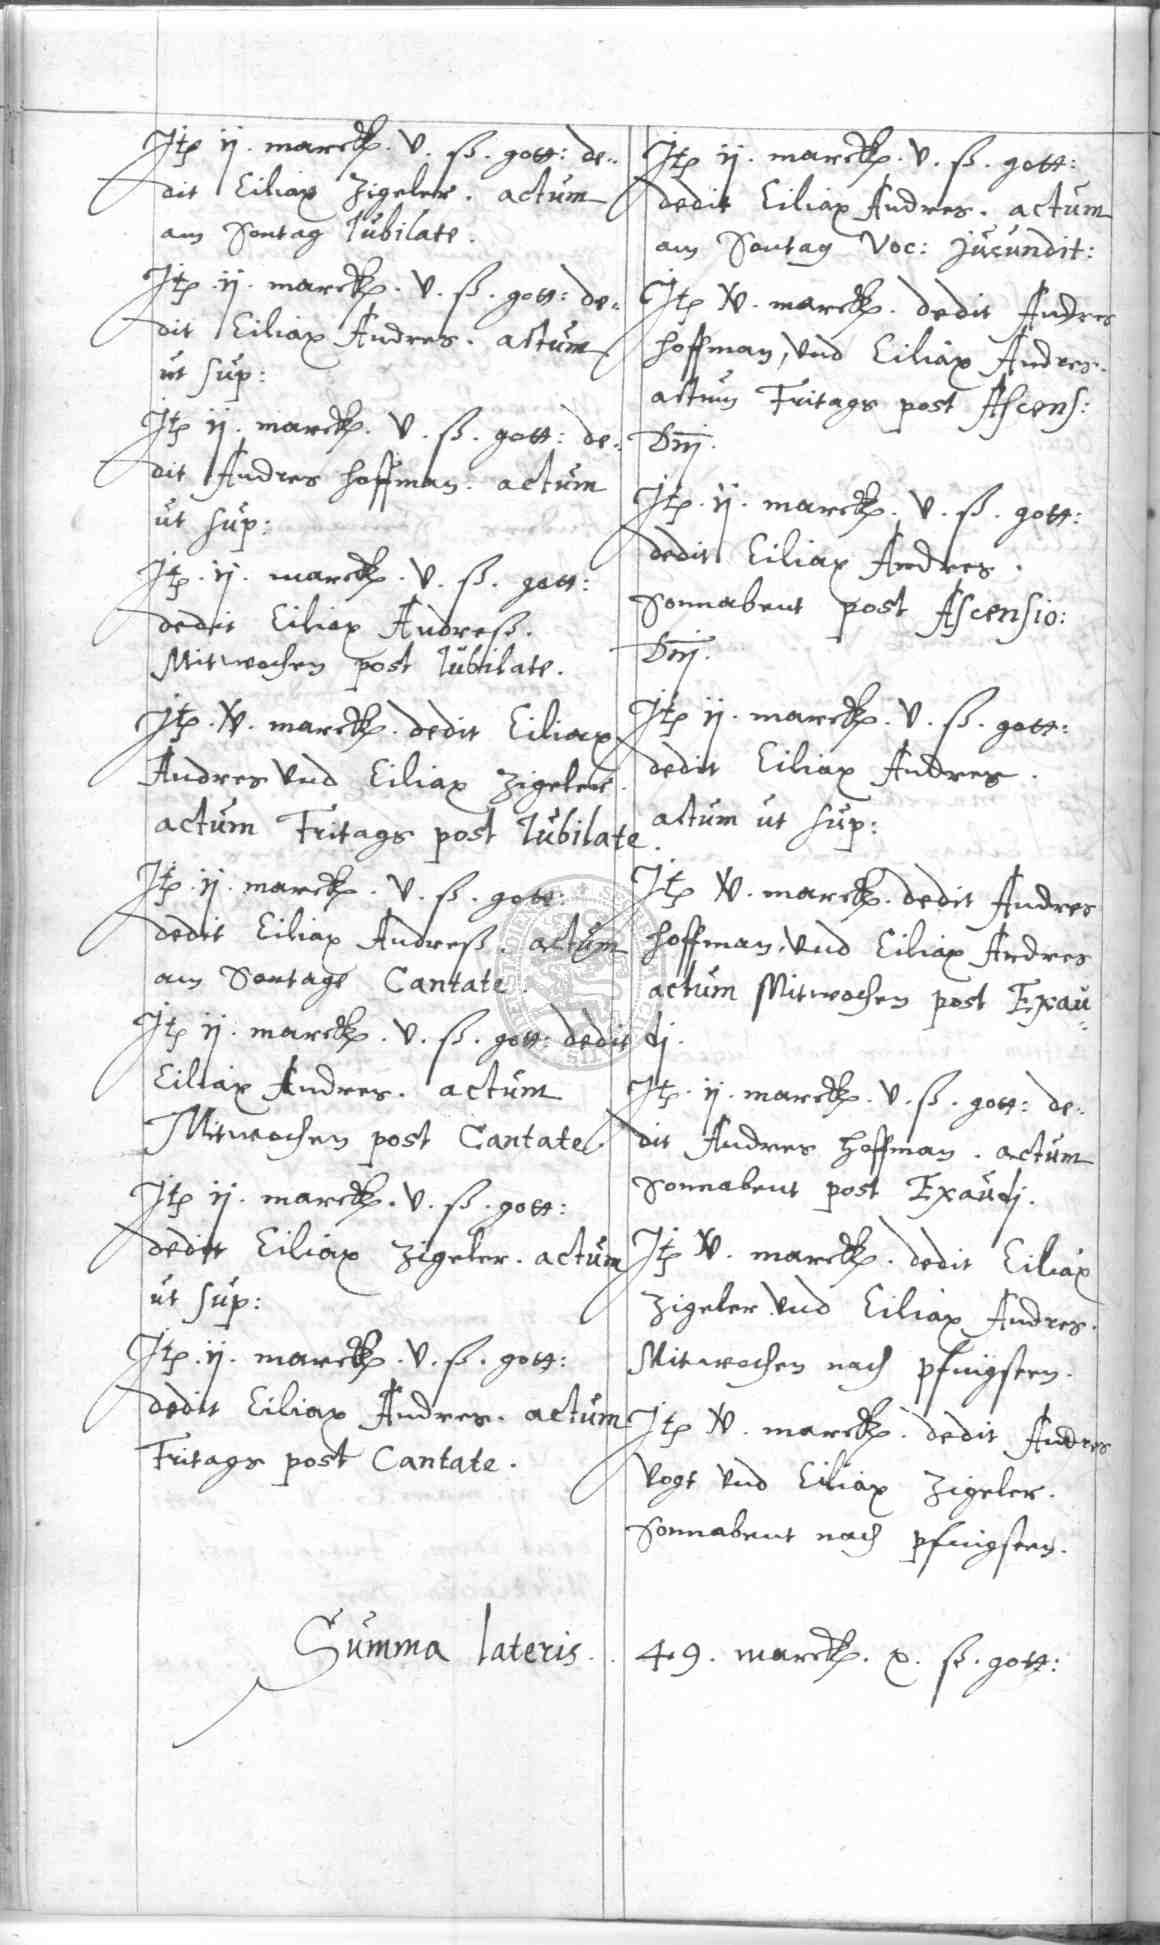 Jtem ij. marck. v. ß. gott: de-
dit Ciliax Zigeler. actum
am Sontag Jubilate.
Jtem ij. marck. v. ß. gott: de-
dit Ciliax Andres. actum
ut sup:
Jtem ij. marck. v. ß. gott: de-
dit Andres Hoffman. actum
ut sup:
Jtem ij. marck. v. ß. gott:
dedit Ciliax Andreß.
Mitwochen post Jubilate.
Jtem marck. dedit Ciliax
Andres vnd Ciliax Zigeler.
actum Fritags post Jubilate.
Jtem ij. marck. v. ß. gott:
dedit Ciliax Andreß. actum
am Sontage Cantate.
Jtem ij. marck. v. ß. gott: dedit
Ciliax Andres. actum
Mitwochen post Cantate.
Jtem ij. marck. v. ß. gott:
dedit Ciliax Zigeler. actum
ut sup:
Jtem ij. marck. v. ß. gott:
dedit Ciliax Andres. actum
Fritags post Cantate.
Jtem ij. marck. v. ß. gott:
dedit Ciliax Andres. actum
am Sontag Voc: Jucundit:
Jtem marck. dedit Andres
Hoffman, vnd Ciliax Andres.
actum Fritags post Ascens:
Dnj.
Jtem ij. marck. v. ß. gott:
dedit Ciliax Andres.
Sonnabent post Ascensio:
Dnj.
Jtem ij. marck. v. ß. gott:
dedit Ciliax Andres.
actum ut sup:
Jtem marck. dedit Andres
Hoffman, vnd Ciliax Andres
actum Mitwochen post Exau-
dj.
Jtem ij. marck. v. ß. gott: de-
dit Andres Hoffman. actum
Sonnabent post Exaudj.
Jtem marck. dedit Ciliax
Zigeler vnd Ciliax Andres.
Mitwochen nach pfingsten.
Jtem marck. dedit Andres
Vogt vnd Ciliax Zigeler.
Sonnabent nach pfingsten.
Summa lateris. 49. marck. x. ß. gott: